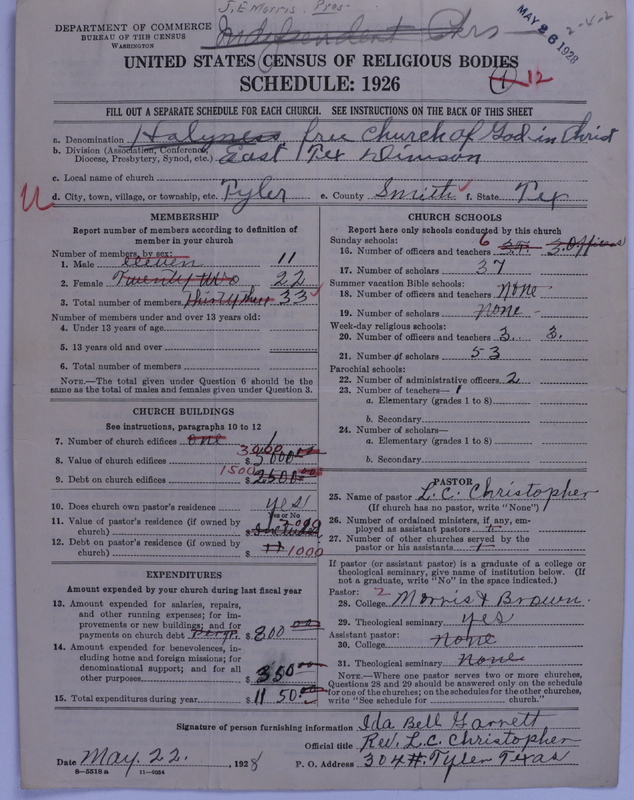 J. E. Morris. Pros-
DEPARTMENT OF COMMERCE
BUREAU OF THE CENSUS
WASHINGTON
Independent Chrs
MAY 26 1928
2-4-2
UNITED STATES CENSUS OF RELIGIOUS BODIES
SCHEDULE: 1926
(1) 12
FILL OUT A SEPARATE SCHEDULE FOR EACH CHURCH. SEE INSTRUCTIONS ON THE BACK OF THIS SHEET
a. Denomination Holyness free Church of God in Christ
b. Division (Association, Conference, Diocese, Presbytery, Synod, etc.) East Tex Divison
c. Local name of church
d. City, town, village, or township, etc. Tyler e. County Smith f. State Tex
MEMBERSHIP
Report number of members according to definition of member in your church
Number of members, by sex:
1. Male eleven 11
2. Female Twenty two 22
3. Total number of members Thirty three 33
Number of members under and over 13 years old:
4. Under 13 years of age
5. 13 years old and over
6. Total number of members
NOTE.—The total given under Question 6 should be the same as the total of males and females given under Question 3.
CHURCH BUILDINGS
See instructions, paragraphs 10 to 12
7. Number of church edifices one 1
8. Value of church edifices $ 3000
9. Debt on church edifices 1500 $ 2500.00
10. Does church own pastor's residence? yes!
Yes or No
11. Value of pastor's residence (if owned by church) $
12. Debt on pastor's residence (if owned by church) $ 1000
EXPENDITURES
Amount expended by your church during last fiscal year
13. Amount expended for salaries, repairs, and other running expenses; for improvements or new buildings; and for payments on church debt $ 800 00
14. Amount expended for benevolences, including home and foreign missions; for denominational support; and for all other purposes $ 350 00
15. Total expenditures during year $ 1150 00
CHURCH SCHOOLS
Report here only schools conducted by this church
Sunday schools:
16. Number of officers and teachers 6 37. 3. Officers
17. Number of scholars 37
Summer vacation Bible schools:
18. Number of officers and teachers none
19. Number of scholars none -
Week-day religious schools:
20. Number of officers and teachers 3. 3.
21. Number of scholars 53
Parochial schools:
22. Number of administrative officers 2
23. Number of teachers— 1
a. Elementary (grades 1 to 8)
b. Secondary
24. Number of scholars—
a. Elementary (grades 1 to 8)
b. Secondary
PASTOR
25. Name of pastor L. C. Christopher
(If church has no pastor, write "None")
26. Number of ordained ministers, if any, employed as assistant pastors
27. Number of other churches served by the pastor or his assistants
If pastor (or assistant pastor) is a graduate of a college or theological seminary, give name of institution below. (If not a graduate, write "No" in the space indicated.)
Pastor: 2
28. College Morris & Brown.
29. Theological seminary yes
Assistant pastor:
30. College none
31. Theological seminary none
NOTE.—Where one pastor serves two or more churches, Questions 28 and 29 should be answered only on the schedule for one of the churches; on the schedules for the other churches, write "See schedule for church."
Signature of person furnishing information Ida Bell Garnett
Official title Rev. L. C. Christopher
Date May. 22. , 1928 P. O. Address 304 #. Tyler Texas
8—5518 a 11—9054